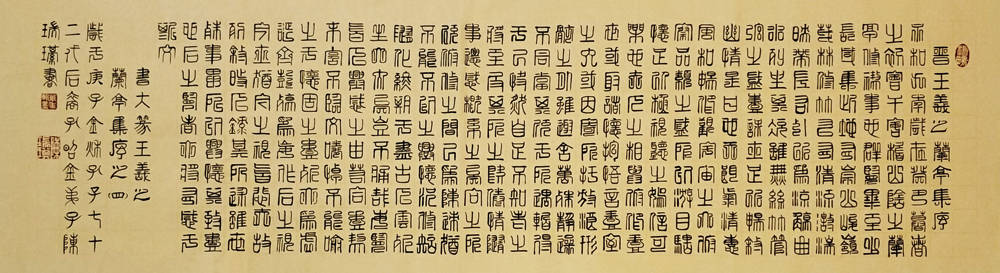 晉王羲之蘭亭集序
永和九年歲在癸丑暮春
之初會于會稽山陰之蘭
亭修禊事也群賢畢至少
長咸集此地有崇山峻嶺
茂林修竹又有清流激湍
映帶左右引以為流觴曲
水列坐其次雖無絲竹管
弦之盛一觴一詠亦足以暢敘
幽情是日也天朗氣清惠
風和暢仰觀宇宙之大俯
察品類之盛所以游目騁
懷足以極視聽之娛信可
樂也夫人之相與俯仰一
世或取諸懷抱晤言一室
之內或因寄所託放浪形
骸之外雖趣舍萬殊靜躁
不同當其欣於所遇暫得
於己快然自足不知老之
將至及其所之既倦情隨
事遷感慨係之矣向之所
欣俛仰之間已為陳跡猶
不能不以之興懷況修短
隨化終期于盡古人云死
生亦大矣豈不痛哉每覽
昔人興感之由若合一契
未嘗不臨文嗟悼不能喻
之於懷固知一死生為虛
誕齊彭殤為妄作後之視
今亦猶今之視昔悲夫故
列敘時人錄其所述雖世
殊事異所以興懷其致一
也後之覽者亦將有感於
斯文
書大篆王羲之
蘭亭集序之四
歲庚子金秋孔子七十
二代后裔孔召金弟子陳
書